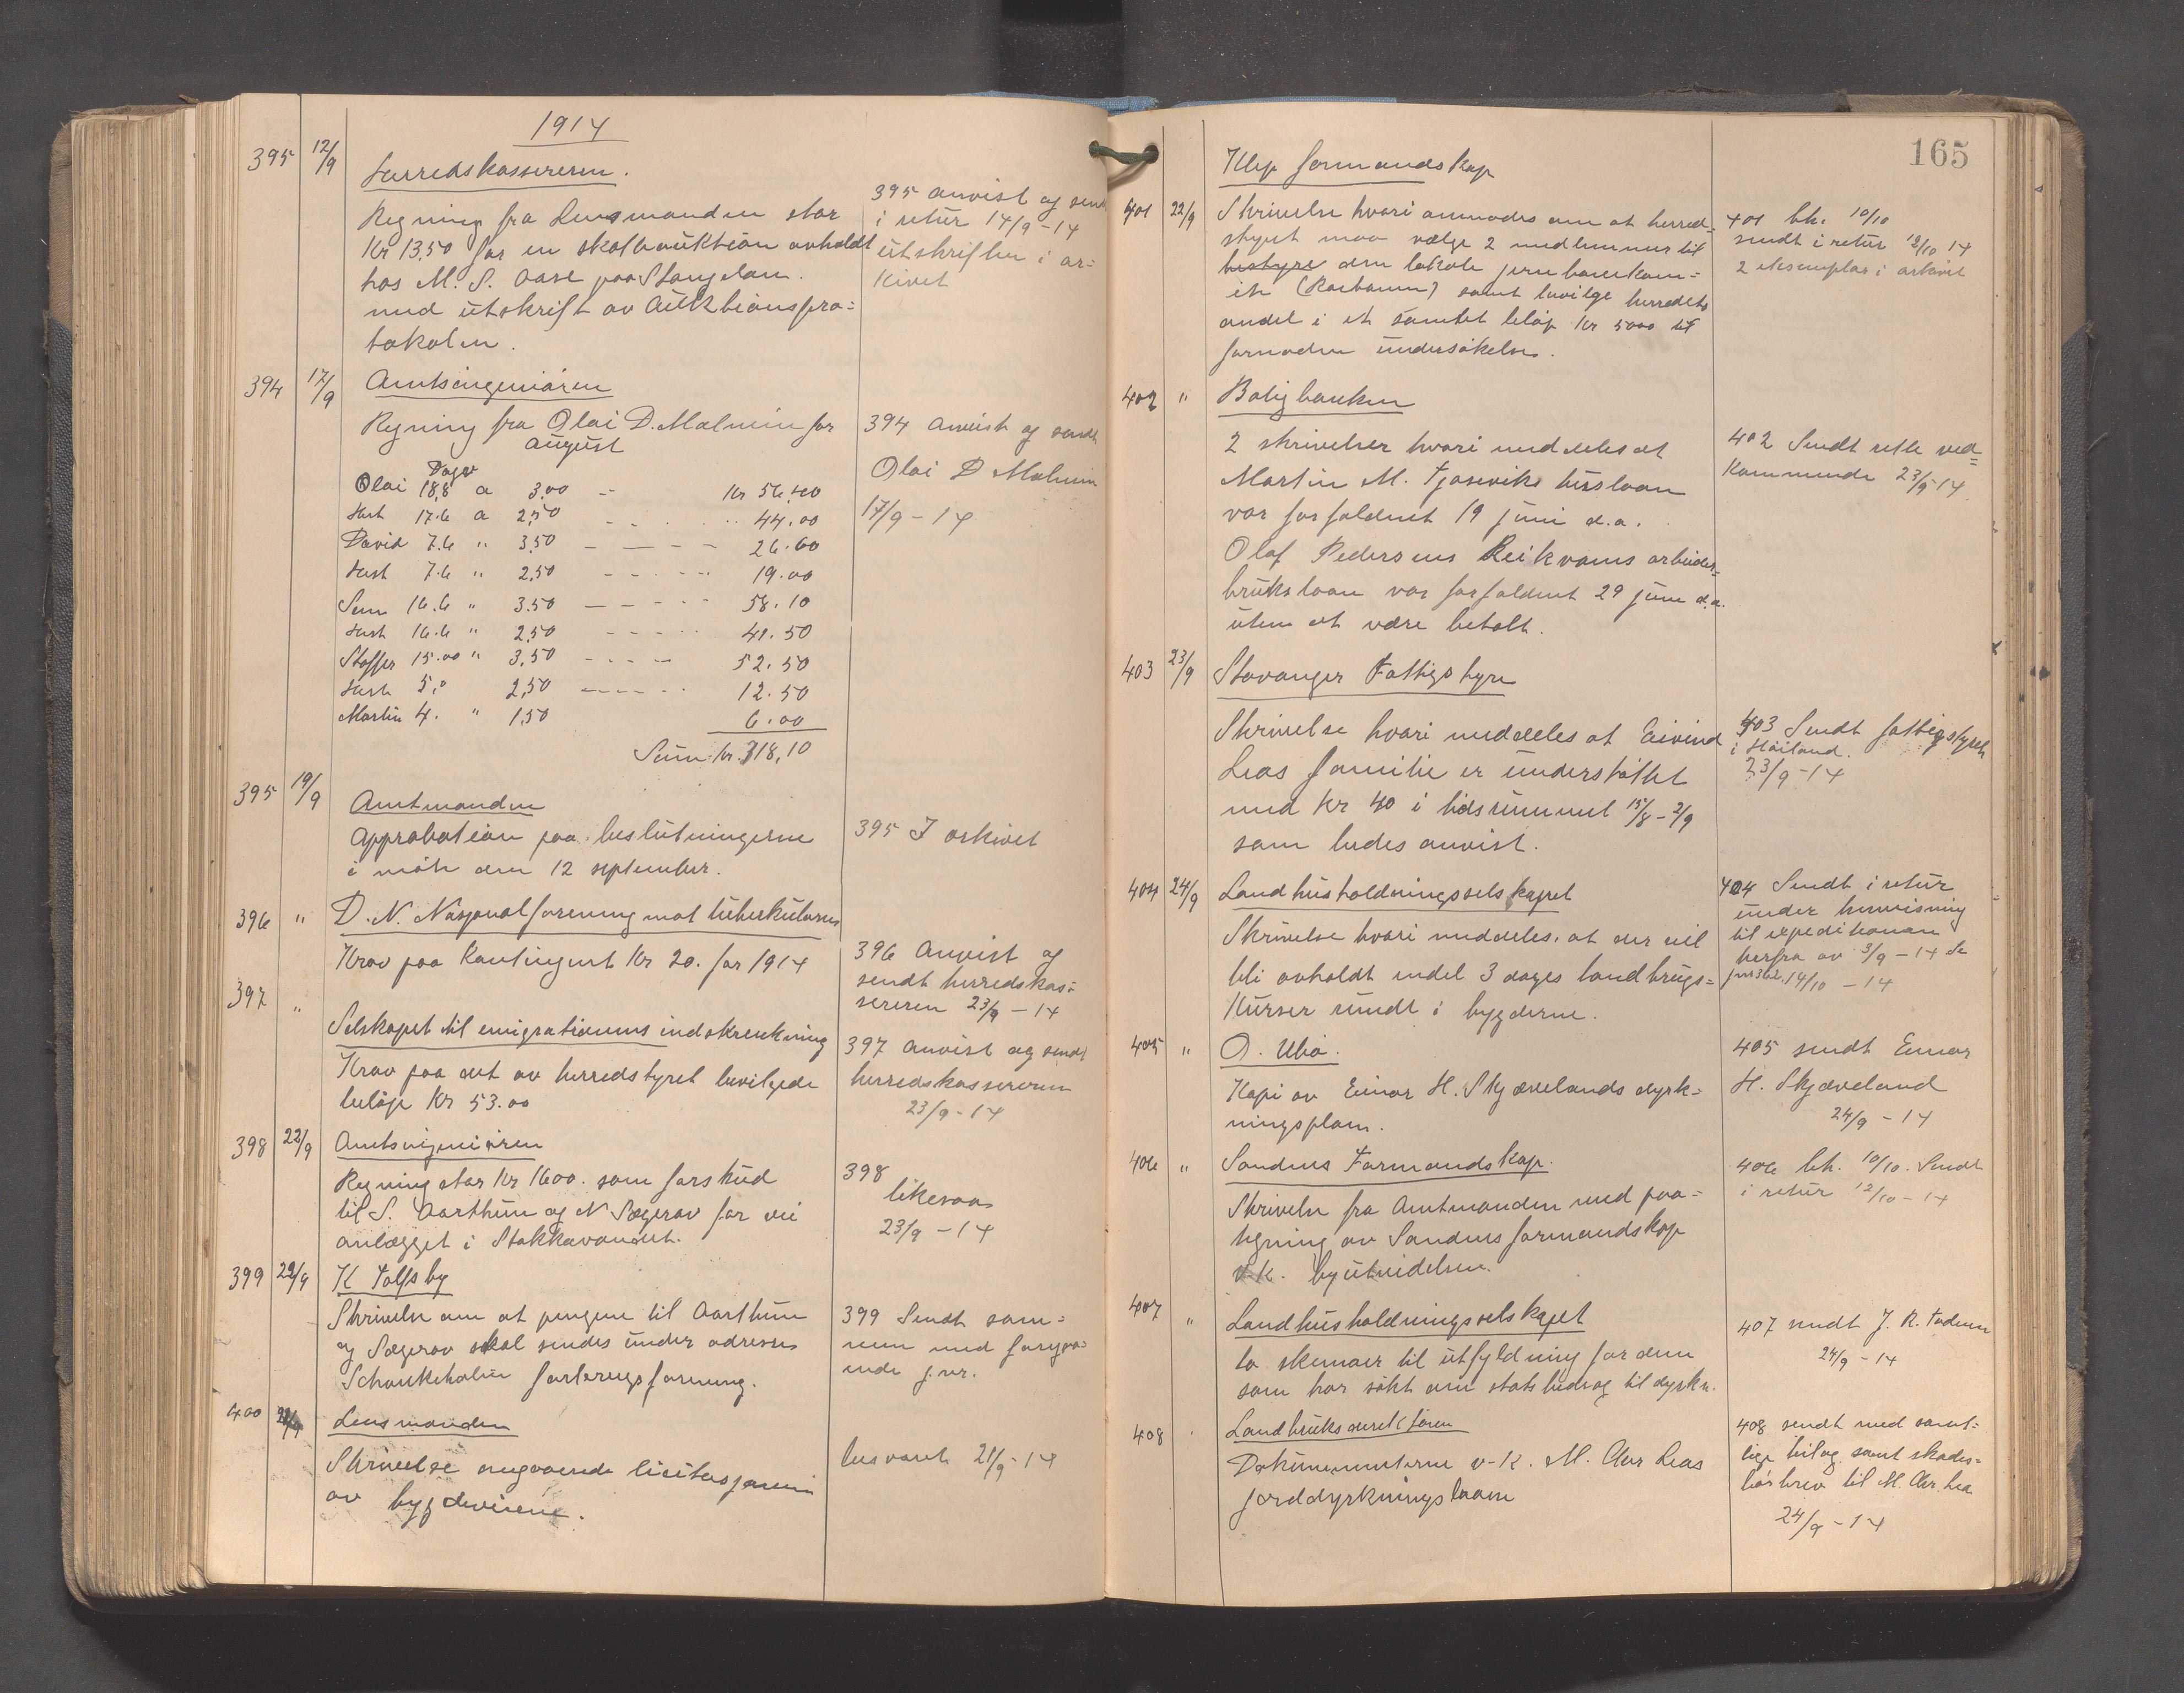 1914
395 12/9 Herredskassereren.
Regning fra Lensmanden stor
Kr 13,50 for en skatteauktion avholdt
hos M. S. Aase paa Stangeland.
med utskrift av Auktionspro=
tokolen.
395 anvist og sendt
i retur 14/9-14
utskriften i ar=
kivet
394 17/9 Amtsingeniøren
Regning fra Olai D. Malmin for
august
Dager
Olai 18,8 a 3,00 - Kr 56,40
Hest 17.6 a 2,50 - 44.00
David 7.6 " 3,50 - 26.60
Hest 7.6 " 2,50 - 19.00
Sem 16.6 " 3.50 - 58.10
Hest 16.6 " 2,50 - 41.50
Stoffer 15.00 " 3,50 - 52.50
Hest 5,0 2,50 - 12.50
Martin 4. " 1,50 6.00
Sum kr. 318,10
394 Anvist og sendt
Olai D Malmin
17/9-14
395 19/9 Amtmanden
Approbation paa beslutningerne
i møte den 12 september.
395 I arkivet
396 " D. N. Nasjonalforening mot tuberkulosen
Krav paa Kontingent Kr 20. for 1914
396 Anvist og
sendt herredskas=
sereren 23/9-14
397 "
Selskapet til emigrationens indskrenkning
Krav paa det av herredstyret bevilgede
beløp Kr 53.00
397 Anvist og sendt
herredskassereren
23/9-14
398 22/9 Amtsingeniøren
Regning stor Kr 1600. som forskud
til S. Aarthun og N Sægerov for vei
anlægget i Stokkavandet.
398
likesaa
23/9-14
399 22/9 K Tolfsby
Skrivelse om at pengene til Aarthun
og Sægerov skal sendes under adresse
399 Sendt sam=
men med foregaa=
ende j.nr.
400 22/9 Lensmanden
Skrivelse angaaende licitasjonen
av bygdeveiene.
besvart 21/9-14
165
Klep formandskap
401 22/9 Skrivelse hvori anmodes om at herred=
styret maa vælge 2 medlemmer til
bestyre den lokale jernbanekom=
ite (Raebanen) samt bevilge herredets
andel i et samlet beløp Kr 5000 til
fornøden undersøkelse.
401 bh. 10/10
sendt i retur 12/10 14
2 eksemplar i arkivet
402 " Boligbanken
2 skrivelser hvori meddeles at
Martin M. Tjosevike huslaan
var forfaldent 19 juni d.a.
Olof Pedersens Reikvams arbeider=
brukslaan var forfaldent 29 juni d.a.
uten at være betalt.
402 Sendt rette ved=
kommende 23/9-14
403 23/9 Stavanger Fattigstyre
Skrivelse hvori meddeles at Eivind
Leas familie er understøttet
med kr 40 i tidsrummet 15/8-2/9
som bedes anvist.
403 Sendt fattigstyret
i Høiland.
23/9-14
404 24/9 Landhusholdningsselskapet
Skrivelse hvori meddeles, at der vil
bli avholdt endel 3 dages landbrugs=
kurser rundt i bygderne.
404 Sendt i retur
under henvisning
til expeditionen
herfra av 3/9-14 Se
14/10-14
405 " O. Ubø.
Kopi av Einar H. Skjævelands dyrk=
ningsplan.
405 sendt Einar
H. Skjæveland
24/9-14
406 " Sandnes Formandskap.
Skrivelse fra Amtmanden med paa=
tegning av Sandnes formandskap
v.k. byutvidelsen.
406 bh. 10/10. Sendt
i retur 12/10-14
407 " Landhusholdningsselskapet
to skemaer til utfyldning for dem
som har søkt om statsbidrag til dyrkn.
407 sendt J. R. Todnem
24/9-14
408 Landbruksdirektøren
Dokumenterne v-k. M. Chr Leas
jorddyrkningslaan
408 sendt med samt=
lige bilag samt skades=
løsbrev til M. Chr. Lea
24/9-14